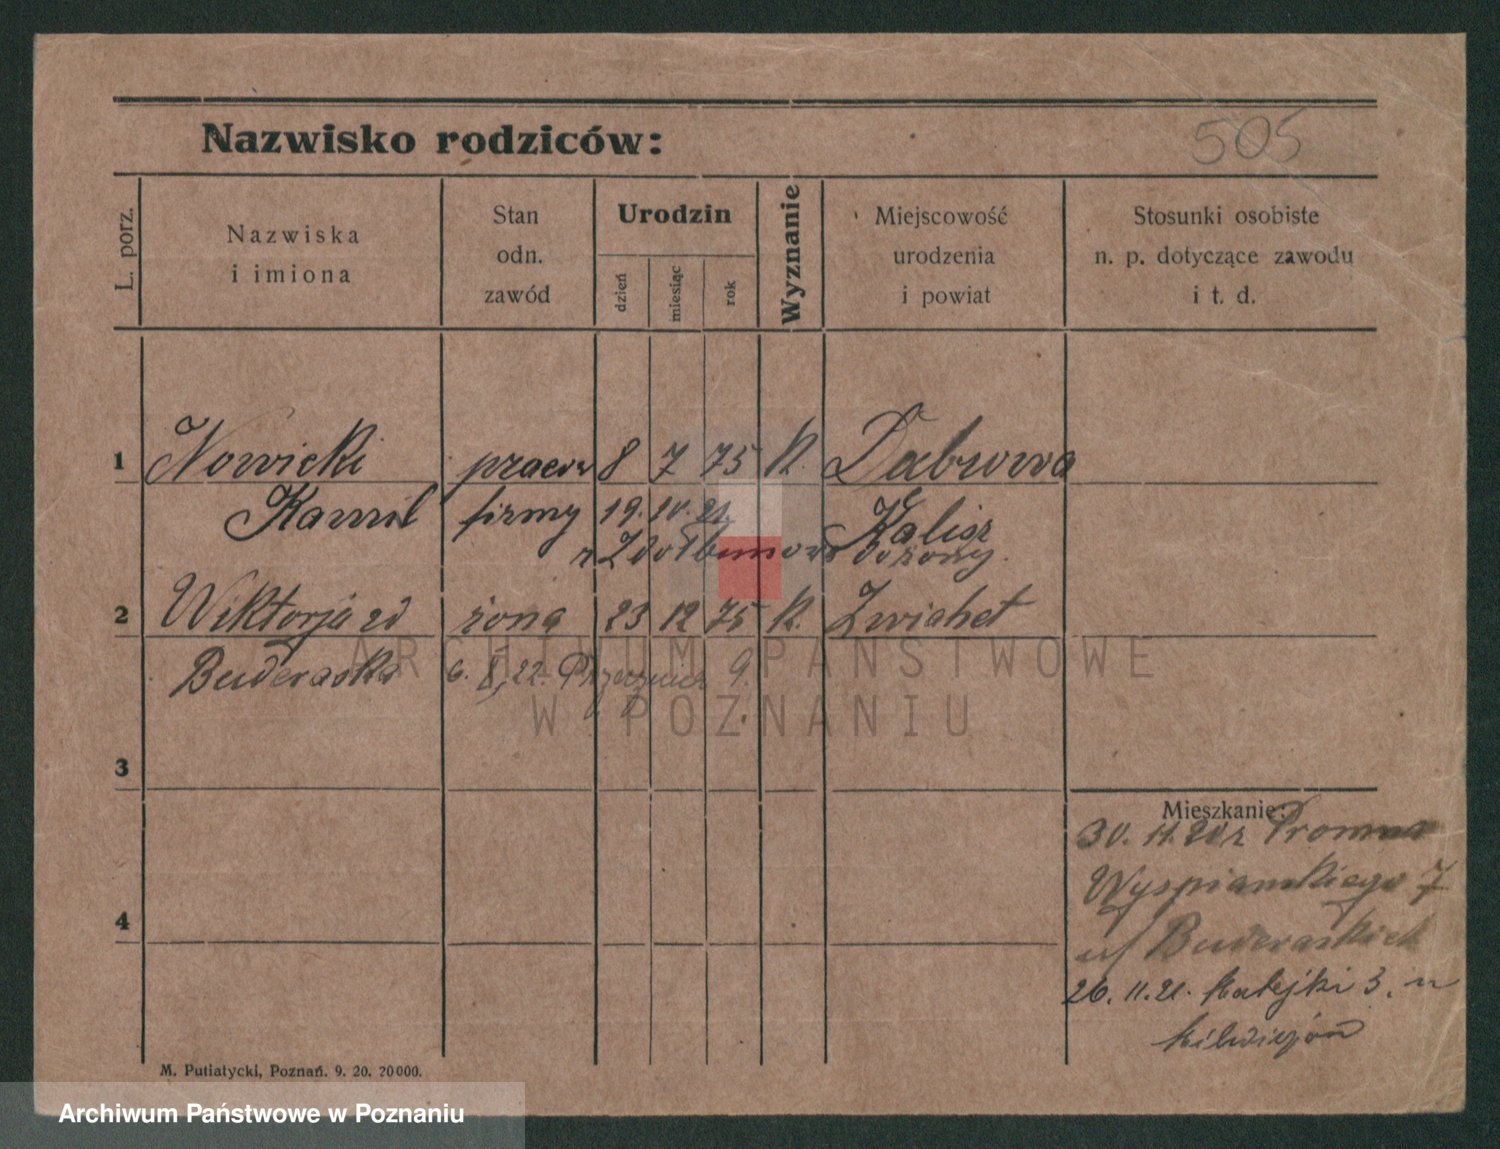 Nazwisko rodziców:
505
L. porz.
Nazwiska
i imiona
Stan
odn.
zawód
Urodzin
dzień
miesiąc
rok
Wyznanie
Miejscowość
urodzenia
i powiat
Stosunki osobiste
n. p. dotyczące zawodu
i t. d.
1 Nowicki pracow 8 7 75 k. Dabrowa
Kamil firmy 19.10.21 Kalisz
z Zdołbunowo dozony.
2 Wiktorja zd żona 23 12 75 k. Zwiahel
Buderaska 6. 8. 22. 9.
ARCHIWUM PAŃSTWOWE
W POZNANIU
3
Mieszkanie:
30. 11. 20 z
Wyspianskiego 7
u/ Buderaskich
4
26. 11. 21. Matejki 3. u
M. Putiatycki, Poznań. 9. 20. 20000.
Archiwum Państwowe w Poznaniu